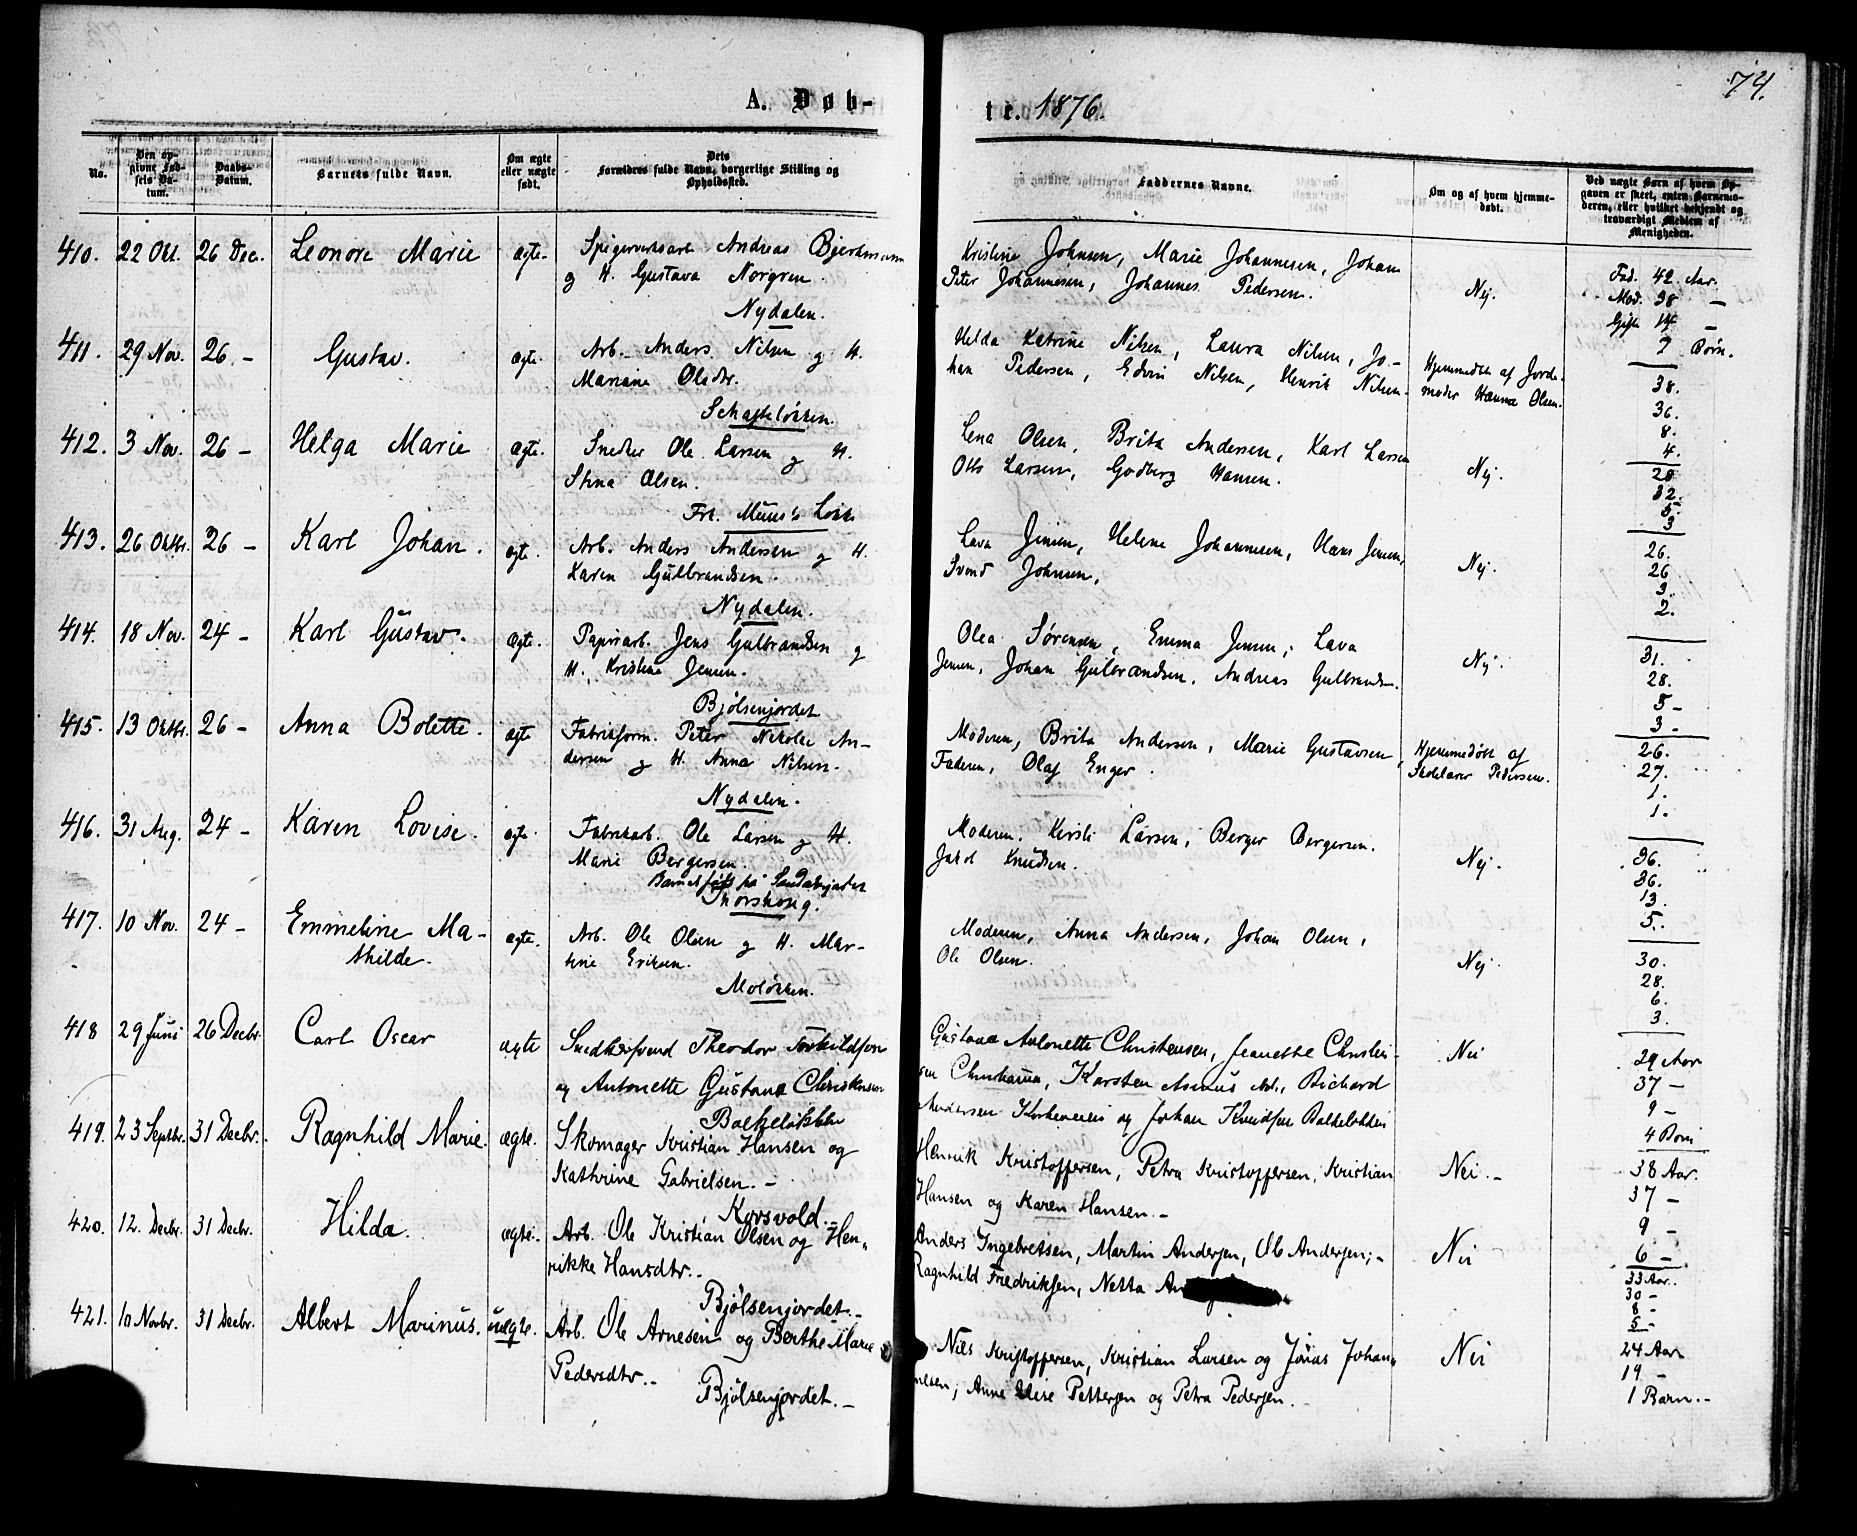 74.
A. Døb-
te. 1876.
No.
Den opgivne Fødsels Datum.
Daabs-Datum.
Barnets fulde Navn.
Om ægte eller uægte født.
Dets Forældres fulde Navn, borgerlige Stilling og Opholdssted.
Faddernes Navne.
Om og af hvem hjemmedøbt.
Ved uægte Børn af hvem Opgaven er skeet, enten Barnemoderen, eller hvilket bekjendt og troværdigt Medlem af Menigheden.
410. 22 Okt. 26 Dec. Leonore Marie ægte. Spigerverksarb. Andreas
og H. Gustava Norgren.
Nydalen.
Kristine Johnsen, Marie Johannesen, Johan
Peter Johannesen, Johannes Pedersen.
Nej.
Fad. 42 Aar.
Mod. 38 —
Gift 14 —
7 Børn.
411. 29 Nov. 26. — Gustav. ægte. Arb. Anders Nilsen og H.
Mariane Olsdtr.
Schafteløkken.
Helda Katrine Nilsen, Laura Nilsen, Jo-
han Pedersen, Edvin Nilsen, Henrik Nilsen.
Hjemmedøbt af Jorde-
moder Hanna Olsen.
38.
36.
8.
4.
412. 3 Nov. 26 — Helga Marie ægte. Snedker Ole Larsen og H.
Stina Olsen.
Frk. Muus's Løkke
Lena Olsen, Brita Andersen, Karl Larsen
Otto Larsen, Godberg Hansen.
Nej.
28
32.
5.
3
413. 26 Oktbr. 26 — Karl Johan. ægte. Arb. Anders Andersen og H.
Karen Gulbrandsen.
Nydalen.
Lava Jensen, Helene Johannesen, Hans Jensen,
Svend Johnsen,
Nej.
26.
26
3.
2.
414. 18 Nov. 24 — Karl Gustav. ægte. Papirarb. Jens Gulbrandsen og
H. Kristine Jensen.
Bjølsenjordet
Olea Sørensen, Emma Jensen, Lava
Jensen, Johan Gulbrandsen, Andreas Gulbrandsen.
Nej.
31.
28.
5 —
3 —
415. 13 Oktbr. 26 — Anna Bolette. ægte Fabrikform. Peter Nikolai An-
dersen og H. Anna Nilsen.
Nydalen.
Moderen, Brita Andersen, Marie Gustavsen,
Faderen, Olaf Enger.
Hjemmedøbt af
Skolelærer Pedersen.
26.
27.
1.
1.
416. 31 Aug. 24 — Karen Lovise. ægte. Fabrikarb. Ole Larsen og H.
Marie Bergersen.
Barnet født på Sandakerjordet
Thorshoug.
Moderen, Kersti Larsen, Berger Bergersen.
Jakob Knudsen.
Nej.
36.
36.
13.
5.
417. 10 Nov. 24 — Emmeline Ma-
thilde. ægte. Arb. Ole Olsen og H. Mar-
tine Eriksen.
Moløkken.
Moderen, Anna Andersen, Johan Olsen,
Ole Olsen.
Nej.
30.
28.
6.
3.
418 29 Juni 26 Decbr. Carl Oscar ægte Snedkersvend Theodor Torkildsen
og Antonette Gustava Christensen
Balkeløkken
Gustava Antonette Christensen, Jeanette Christen-
sen Christiania, Karsten Asmus Arb., Richard
Andersen og Johan Knudsen Balkeløkken
Nei
29 Aar
37 —
9 —
4 Børn
419. 23 Septbr. 31 Decbr. Ragnhild Marie. ægte. Skomager Kristian Hansen og
Kathrine Gabrielsen. —
Korsvold. —
Henrik Kristoffersen, Petra Kristoffersen, Kristian
Hansen og Karen Hansen. —
Nei. —
38 Aar.
37 —
9 —
6 —
420. 12. Decbr. 31 Decbr. Hilda. ægte. Arb. Ole Kristian Olsen og Hen-
rikke Hansdtr. —
Bjølsenjordet. —
Anders Ingebretsen, Martin Andersen, Ole Andersen; —
Ragnhild Fredriksen, Netta
Nei
33 Aar.
30 —
8 —
5 —
421. 10 Novbr. 31 Decbr. Albert Marinus. uægte. Arb. Ole Arnesen og Berthe Marie
Pedersdtr. —
Bjølsenjordet. —
Nils Kristoffersen, Kristian Larsen og Jonas Johan-
nesen, Anne Elise Pettersen og Petra Pedersen.
Nei
24 Aar
19 —
1 Barn. —